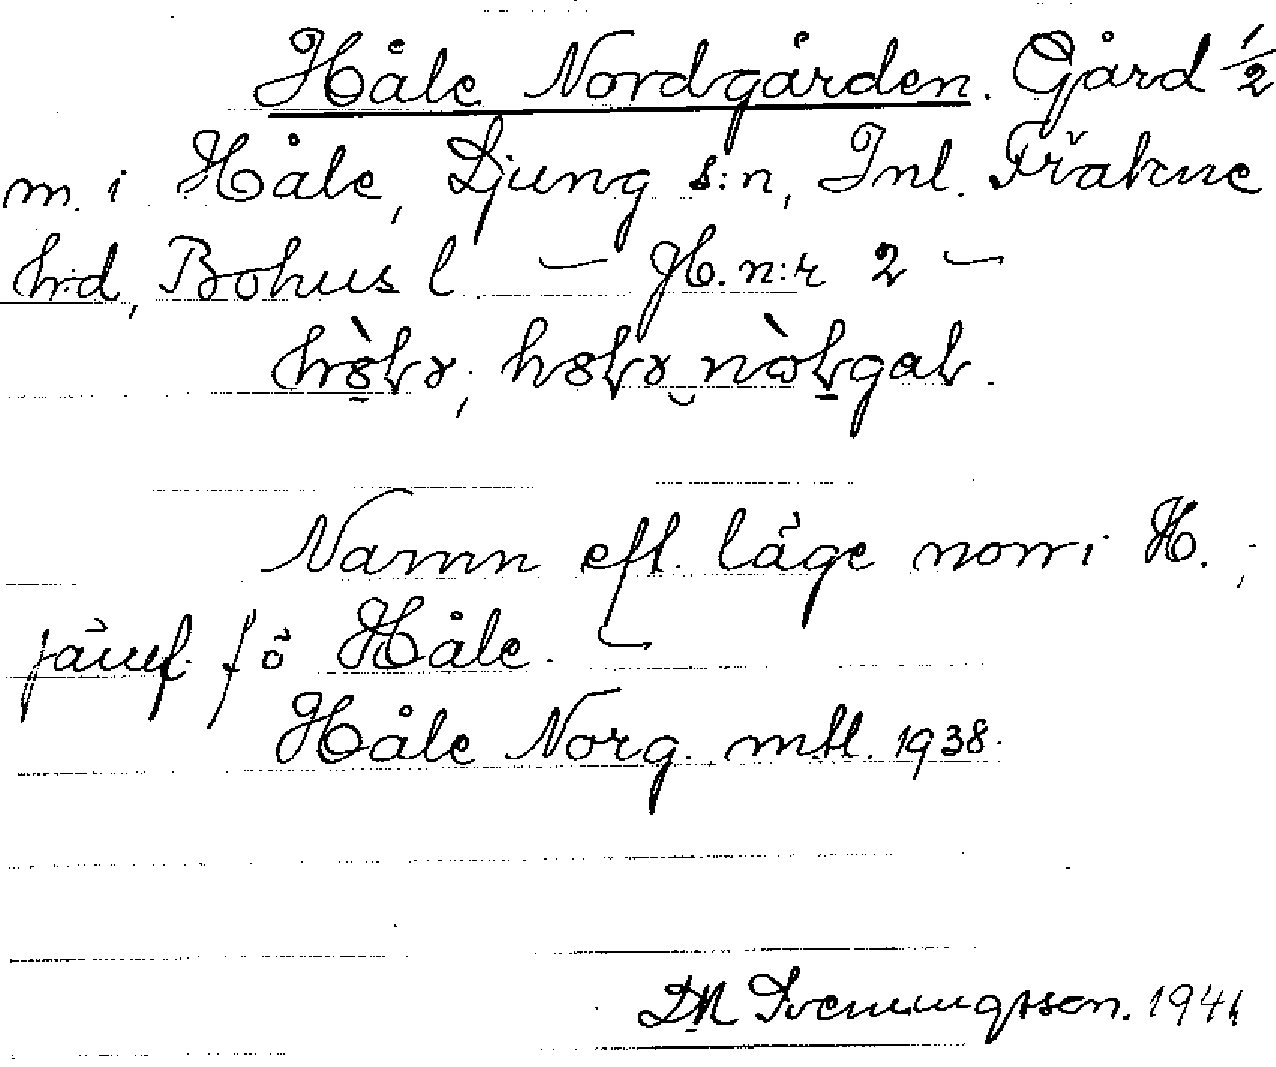 Håle Nordgården. Gård 1/2
m. i Håle, Ljung s:n, Inl. Fräkne
hrd, Bohus l. — Jb. n:r 2 —
Namn eft. läge norr i H.;
jämf. fö Håle.
Håle Norg. mtl. 1938.
DN Svenningsson. 1941